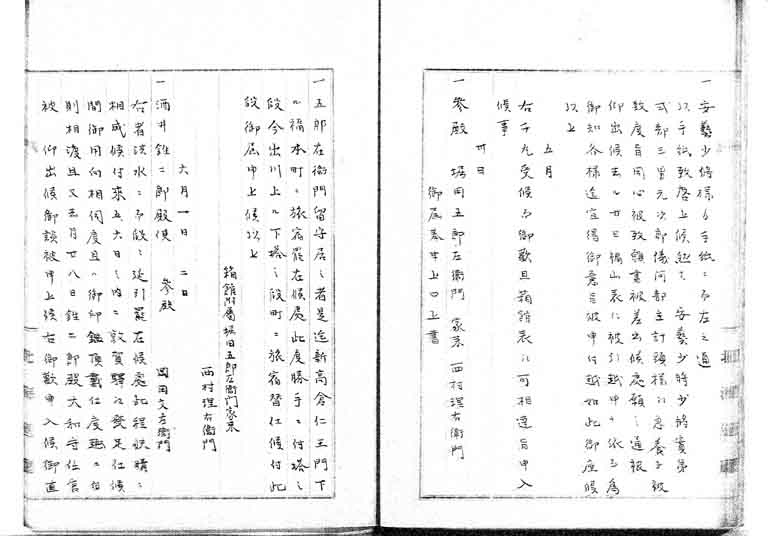 一 安藝少将様ゟ手紙ニ而左之通
以手紙致啓上候然者 安藝少将少将實弟
式部三男元次郎儀阿部主計頭様江急養子被
致度旨同心被致願書被差出候處願之通被
仰出候去ル廿三日福山表江被引越申候依之為
御知各様迄宜得御意旨被申付越如此御座候
以上
五月
右千九受候而御歓且箱館表江可相達旨申入
候事
廿日
一 参殿 堀田五郎左衛門 家来 西村理右衛門
御届書申上口上書
一 五郎左衛門留守居之者是迄新高倉仁王門下
ル福本町ニ旅宿罷在候處此度勝手ニ付塔之
段今出川上ル下塔之段町江旅宿替仕候付此
段御届申上候以上
箱館附属堀田五郎左衛門家来
西村理右衛門
六月一日 二日
一 酒井錐二郎殿使 参殿 岡田文左衛門
右者洪水ニ而段々延引罷在候處此程快晴ニ
相成候付来五六日之内ニ敦賀驛江発足仕候
間御用向相伺度且ハ御印鑑頂戴仕度趣ニ付
則相渡且又去月廿八日錐二郎殿大和守任官
被 仰出候御談被申上候右御歓申入候御直